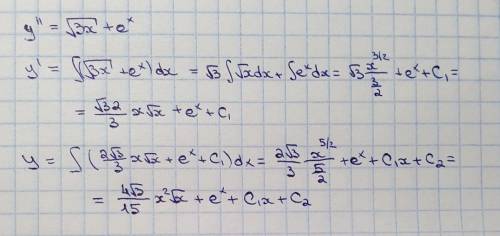 y'' = √3x + eˣ
y' = ∫(√3x + eˣ)dx = √3 ∫√x dx + ∫eˣdx = √3 x^(3/2)/(3/2) + eˣ + C₁ =
= √3 2/3 x√x + eˣ + C₁
y = ∫(2√3/3 x√x + eˣ + C₁)dx = 2√3/3 x^(5/2)/(5/2) + eˣ + C₁x + C₂ =
= 4√3/15 x²√x + eˣ + C₁x + C₂